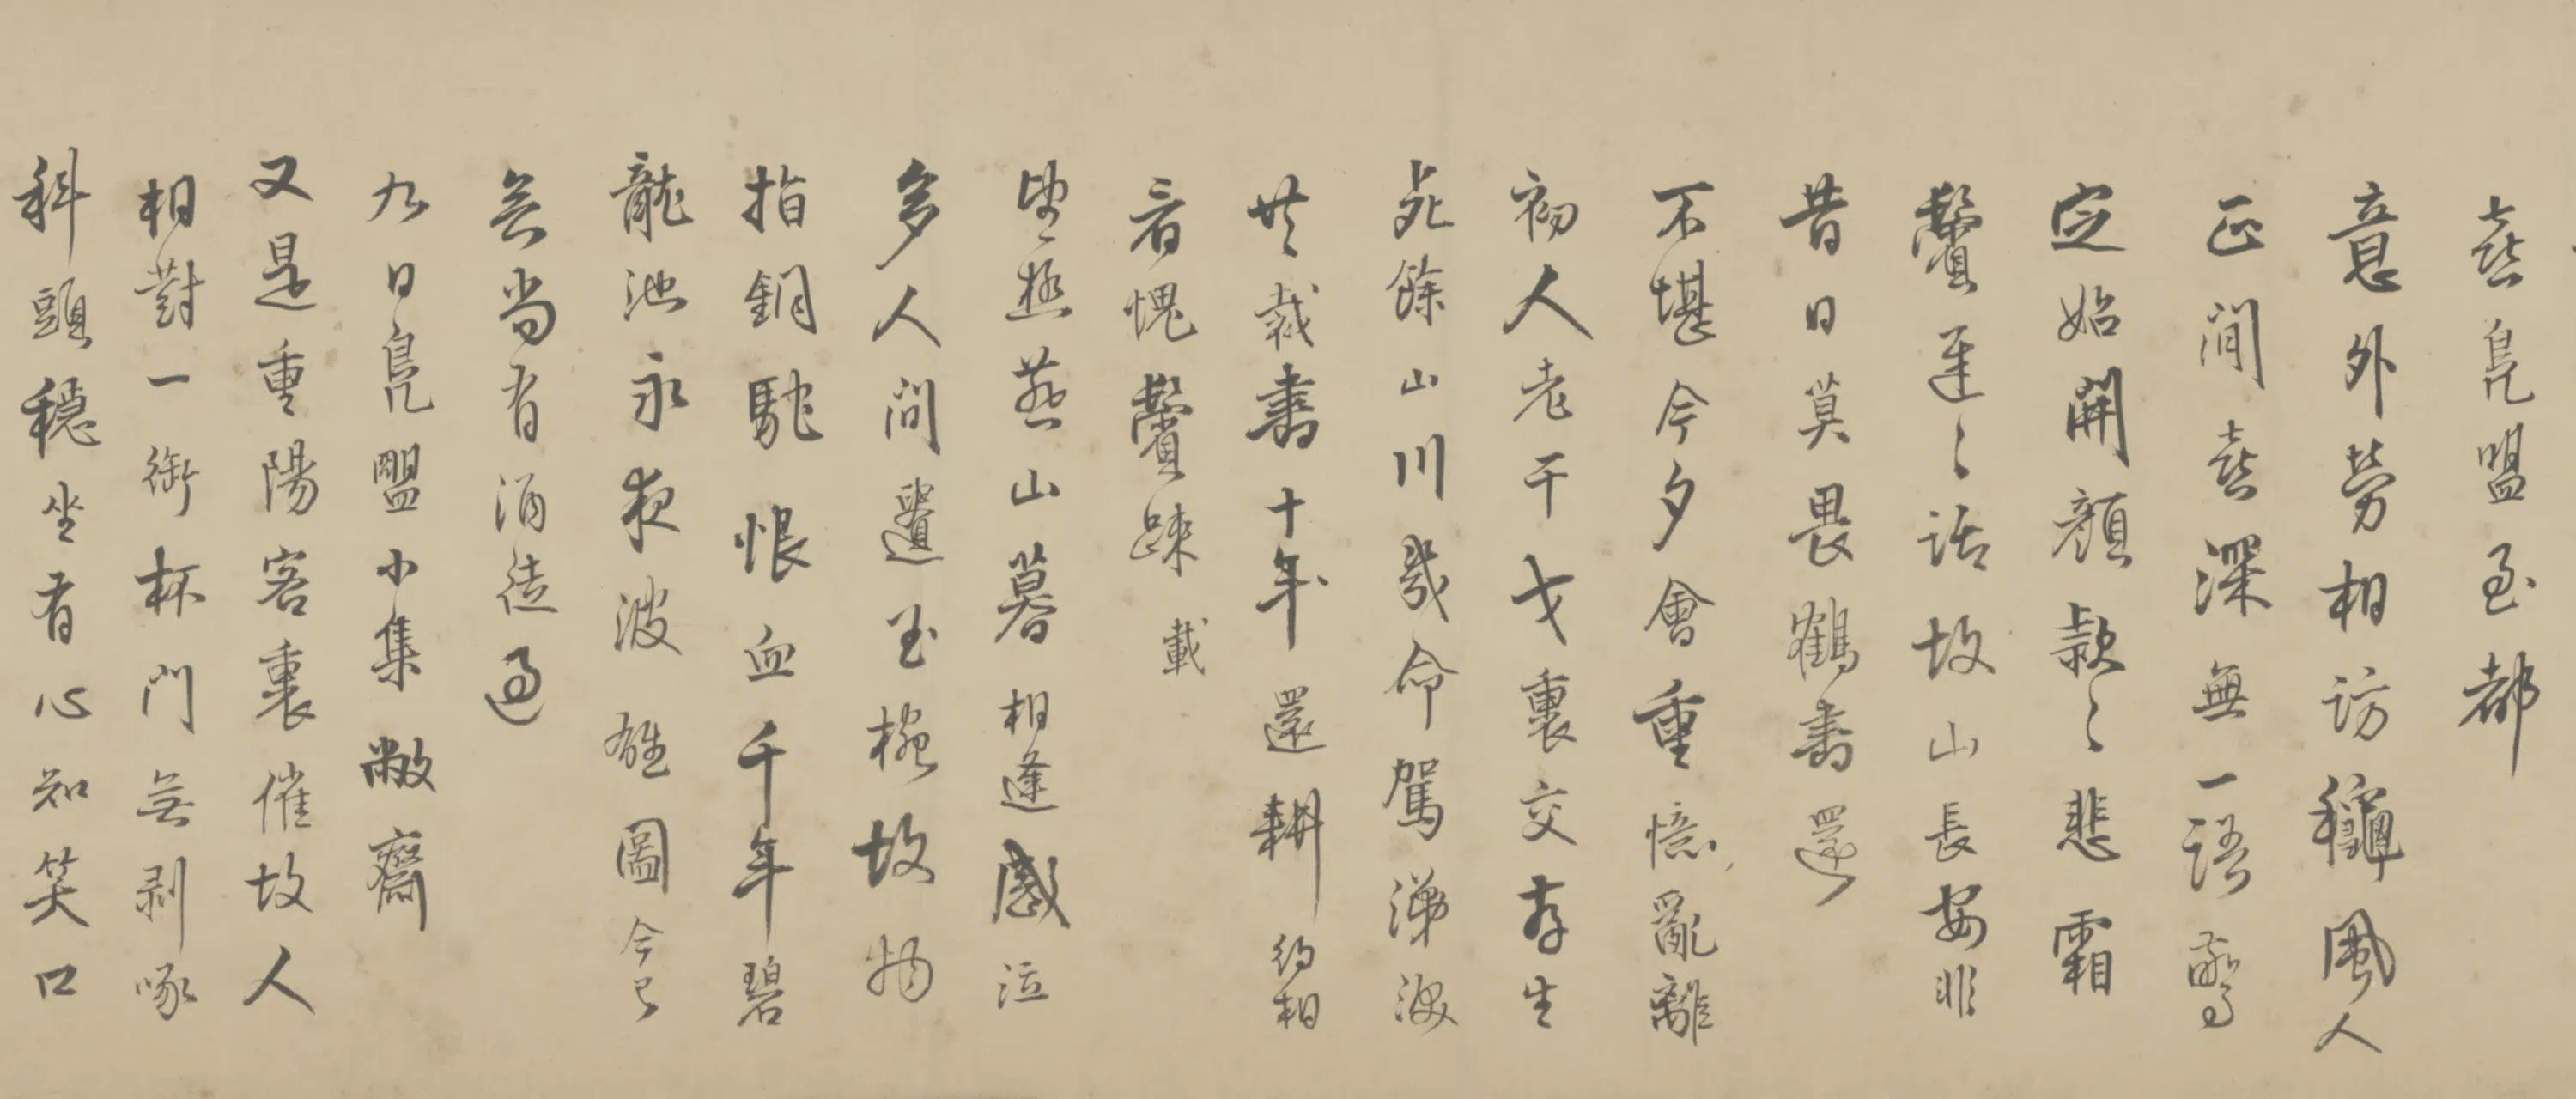 喜鳧盟至都
意外勞相訪龝風人
正閒喜深無一語驚
定始開顏款〻悲霜
鬢遲〻話故山長安非
昔日莫畏鶴書還
不堪今夕會重憶亂離
初人老干戈裏交存生
死餘山川幾命駕涕淚
廿載書十年還耕約相
看愧鬢疎載
望極燕山暮相逢感泣
多人間遺玉椀故物
指銅駝恨血千年碧
龍池永夜波雄圖今已
矣尚有酒徒過
九日鳧盟小集敝齋
又是重陽客裏催故人
相對一銜杯門無剥啄
科頭穩坐有心知笑口